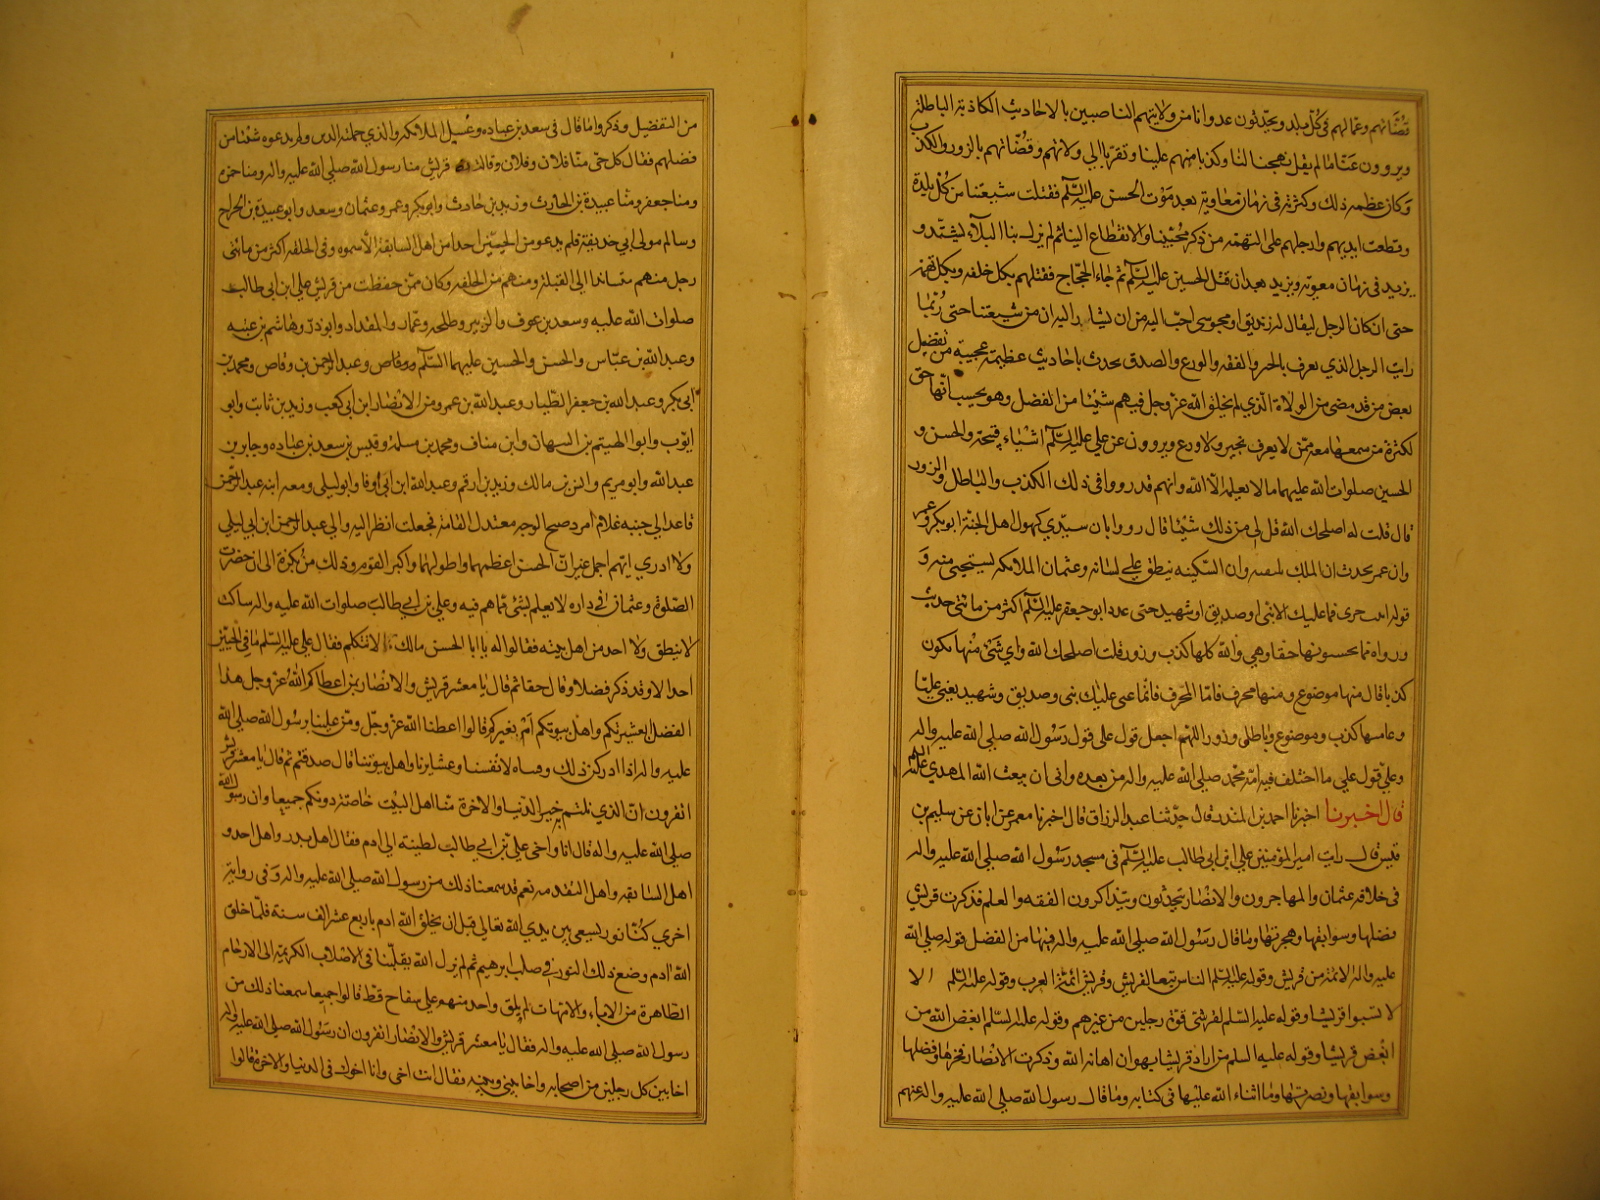 قضاتهم وعمالهم في كل بلد ويحدثون عدوانا من ولايتهم الناصبين بالاحاديث الكاذبة الباطلة
ويروون عنا ما لم يقل تهجينا لنا وكذبا منهم علينا وتقربا الى ولاتهم وقضاتهم بالزور والكذب
وكان عظم ذلك وكثرته في زمان معاوية بعد موت الحسن عليه السلم فقتلت شيعتنا من كل بلدة
وقطعت ايديهم وارجلهم على التهمة من ذكر محبتنا والانقطاع الينا ثم لم يزل بنا البلاء ليشتد و
يزيد في زمان معوية ويزيد بعد ان قتل الحسين عليه السلم ثم جاء الحجاج فقتلهم بكل خلفه وبكل تهمة
حتى ان كان الرجل ليقال له زنديق او مجوسي احب اليه من ان يشار اليه ان من شيعتنا حتى ربما
رايت الرجل الذي يعرف بالخير والفقه والورع والصدق يحدث باحاديث عظيمة عجيبة من تفضيل
بعض من قد مضى من الولاة الذي لم يخلق الله عز وجل فيهم شيئا من الفضل وهو يحسب انها حق
لكثرة من سمعها معه ممن لا يعرف بخير ولا ورع ويروون عن علي عليه السلم اشياء قبيحة والحسن و
الحسين صلوات الله عليهما ما لا يعلمه الا الله وانهم قد رووا في ذلك الكذب والباطل والزور
قال قلت له اصلحك الله قل لي من ذلك شيئا قال رووا بان سيدي كهول اهل الجنة ابو بكر وعمر
وان عمر يحدث ان الملك يلقنه وان السكينة ينطق على لسانه وعثمان الملائكة ليستحيى منه و
قوله اثبت حرى فما عليك الا نبي او صديق او شهيد حتى عدد ابو جعفر عليه السلم اكثر من مائتى حديث
ورواه مما يحسبونها حقا وهي والله كلها كذب وزور قلت اصلحك الله واي شئ منها مكون
كذبا قال منها موضوع ومنها محرف فاما المحرف فانما عنى عليك نبي وصديق وشهيد يعني عليا
وعامتها كذب وموضوع وباطل وزور اللهم اجعل قول على قول رسول الله صلى الله عليه واله
وعلى قول علي ما اختلف فيه امة محمد صلى الله عليه واله من بعده وانى ان يبعث الله المهدي عليه السلم
قال اخبرنا اخبرنا احمد بن المنذر قال حدثنا عبد الرزاق قال اخبرنا معمر عن ابان عن سليم بن
قيس قال رايت امير المؤمنين علي ابن ابي طالب عليه السلم في مسجد رسول الله صلى الله عليه واله
في خلافة عثمان والمهاجرون والانصار يتحدثون ويتذاكرون الفقه والعلم فذكرت قريش
فضلها وسوابقها وهجرتها وما قال رسول الله صلى الله عليه واله فيها من الفضل قوله صلى الله
عليه واله الائمة من قريش وقوله عليه السلم الناس تبعا لقريش وقريش ائمة العرب وقوله عليه السلم الا
لا تسبوا قريشا وقوله عليه السلم لقرشي قوة رجلين من غيرهم وقوله عليه السلم ابغض الله من
ابغض قريشا وقوله عليه السلم من اراد قريشا بهوان اهانه الله وذكرت الانصار فخرها وفضلها
وسوابقها ونصرتها وما اثناء الله عليها في كتابه وما قال رسول الله صلى الله عليه واله عنهم
من التفضيل وذكروا ما قال في سعد بن عباده وغسيل الملائكة والذي حمته الدبر ولم يدعوه شيئا من
فضلهم فقال كل حي منا فلان وفلان وقالت قريش منا رسول الله صلى الله عليه واله ومنا حمزه
ومنا جعفر ومنا عبيدة بن الحارث وزيد بن حادث وابو بكر وعمر وعثمان وسعد وابو عبيدة بن الجراح
وسالم مولى ابي حذيفة فلم يدعو من الحيين احدا من اهل السابقة الا سموه وفي الحلقه اكثر من مائتى
رجل منهم متساندا الى القبلة ومنهم من الحلقه وكان ممن حفظت من قريش علي ابن ابي طالب
صلوات الله عليه وسعد بن عوف والزبير وطلحه وعمار والمقداد وابو ذر وهاشم بن عتبه
وعبد الله بن عباس والحسن والحسين عليهما السلام ووقاص وعبد الرحمن بن وقاص ومحمد بن
ابي بكر وعبد الله بن جعفر الطيار وعبد الله بن عمر ومن الانصار ابن ابي كعب وزيد بن ثابت وابو
ايوب وابوا الهيثم بن التيهان وابن مناف ومحمد بن مسلمة وقيس بن سعد بن عباده وجابر بن
عبد الله وابو مريم وانس بن مالك وزيد بن ارقم وعبد الله ابن ابي اوفا وابو ليلى ومعه ابنه عبد الرحمن
قاعد الى جنبه غلام امرد صبيح الوجه معتدل القامة فجعلت انظر اليه والى عبد الرحمن ابن ابي ليلى
ولا ادري ايهم اجمل غير ان الحسن اعظمهما واطولهما واكبر القوم وذلك من بكرة الى ان حضرت
الصلوة وعثمان في داره لا يعلم بشئ مما هم فيه وعلي بن ابي طالب صلوات الله عليه واله ساكت
لا ينطق ولا احد من اهل بيته فقالوا له يا ابا الحسن مالك الا تتكلم فقال علي عليه السلم ما في الحيين
احد الا وقد ذكر فضلا وقال حقا ثم قال يا معشر قريش والانصار بمن اعطاكم الله عز وجل هذا
الفضل ابعشيرتكم واهل بيوتكم ام بغيركم قالوا اعطنا الله عز وجل ومن علينا برسول الله صلى الله
عليه واله اذا ادركنا ذلك وفساه لا نفسنا وعشايرنا واهل بيوتنا قال صدقتم ثم قال يا معشر قريش
اتقرون ان الذي نلتم به خير الدنيا والاخرة منا اهل البيت خاصة دونكم جميعا وان رسول الله
صلى الله عليه واله قال انا واخى علي بن ابي طالب لطينة الى ادم فقال اهل بدر واهل احد و
اهل السابقه واهل التقدمه نعم قد سمعنا ذلك من رسول الله صلى الله عليه واله وفي رواية
اخرى كنا نور يسعى بين يدي الله تعالى قبل ان يخلق الله ادم باربع عشر الف سنة فلما خلق
الله ادم وضع ذلك النور في صلب ابرهيم ثم لم يزل الله يقلبنا في الاصلاب الكريمة الى الارحام
الطاهرة من الاباء والامهات لم يلق واحد منهم على سفاح قط قالوا جميعا سمعنا ذلك من
رسول الله صلى الله عليه واله فقال يا معشر قريش والانصار اتقرون ان رسول الله صلى الله عليه واله
اخا بين كل رجلين من اصحابه واخا بيني وبينه فقال انت اخى وانا اخوك في الدنيا والاخرة قالوا